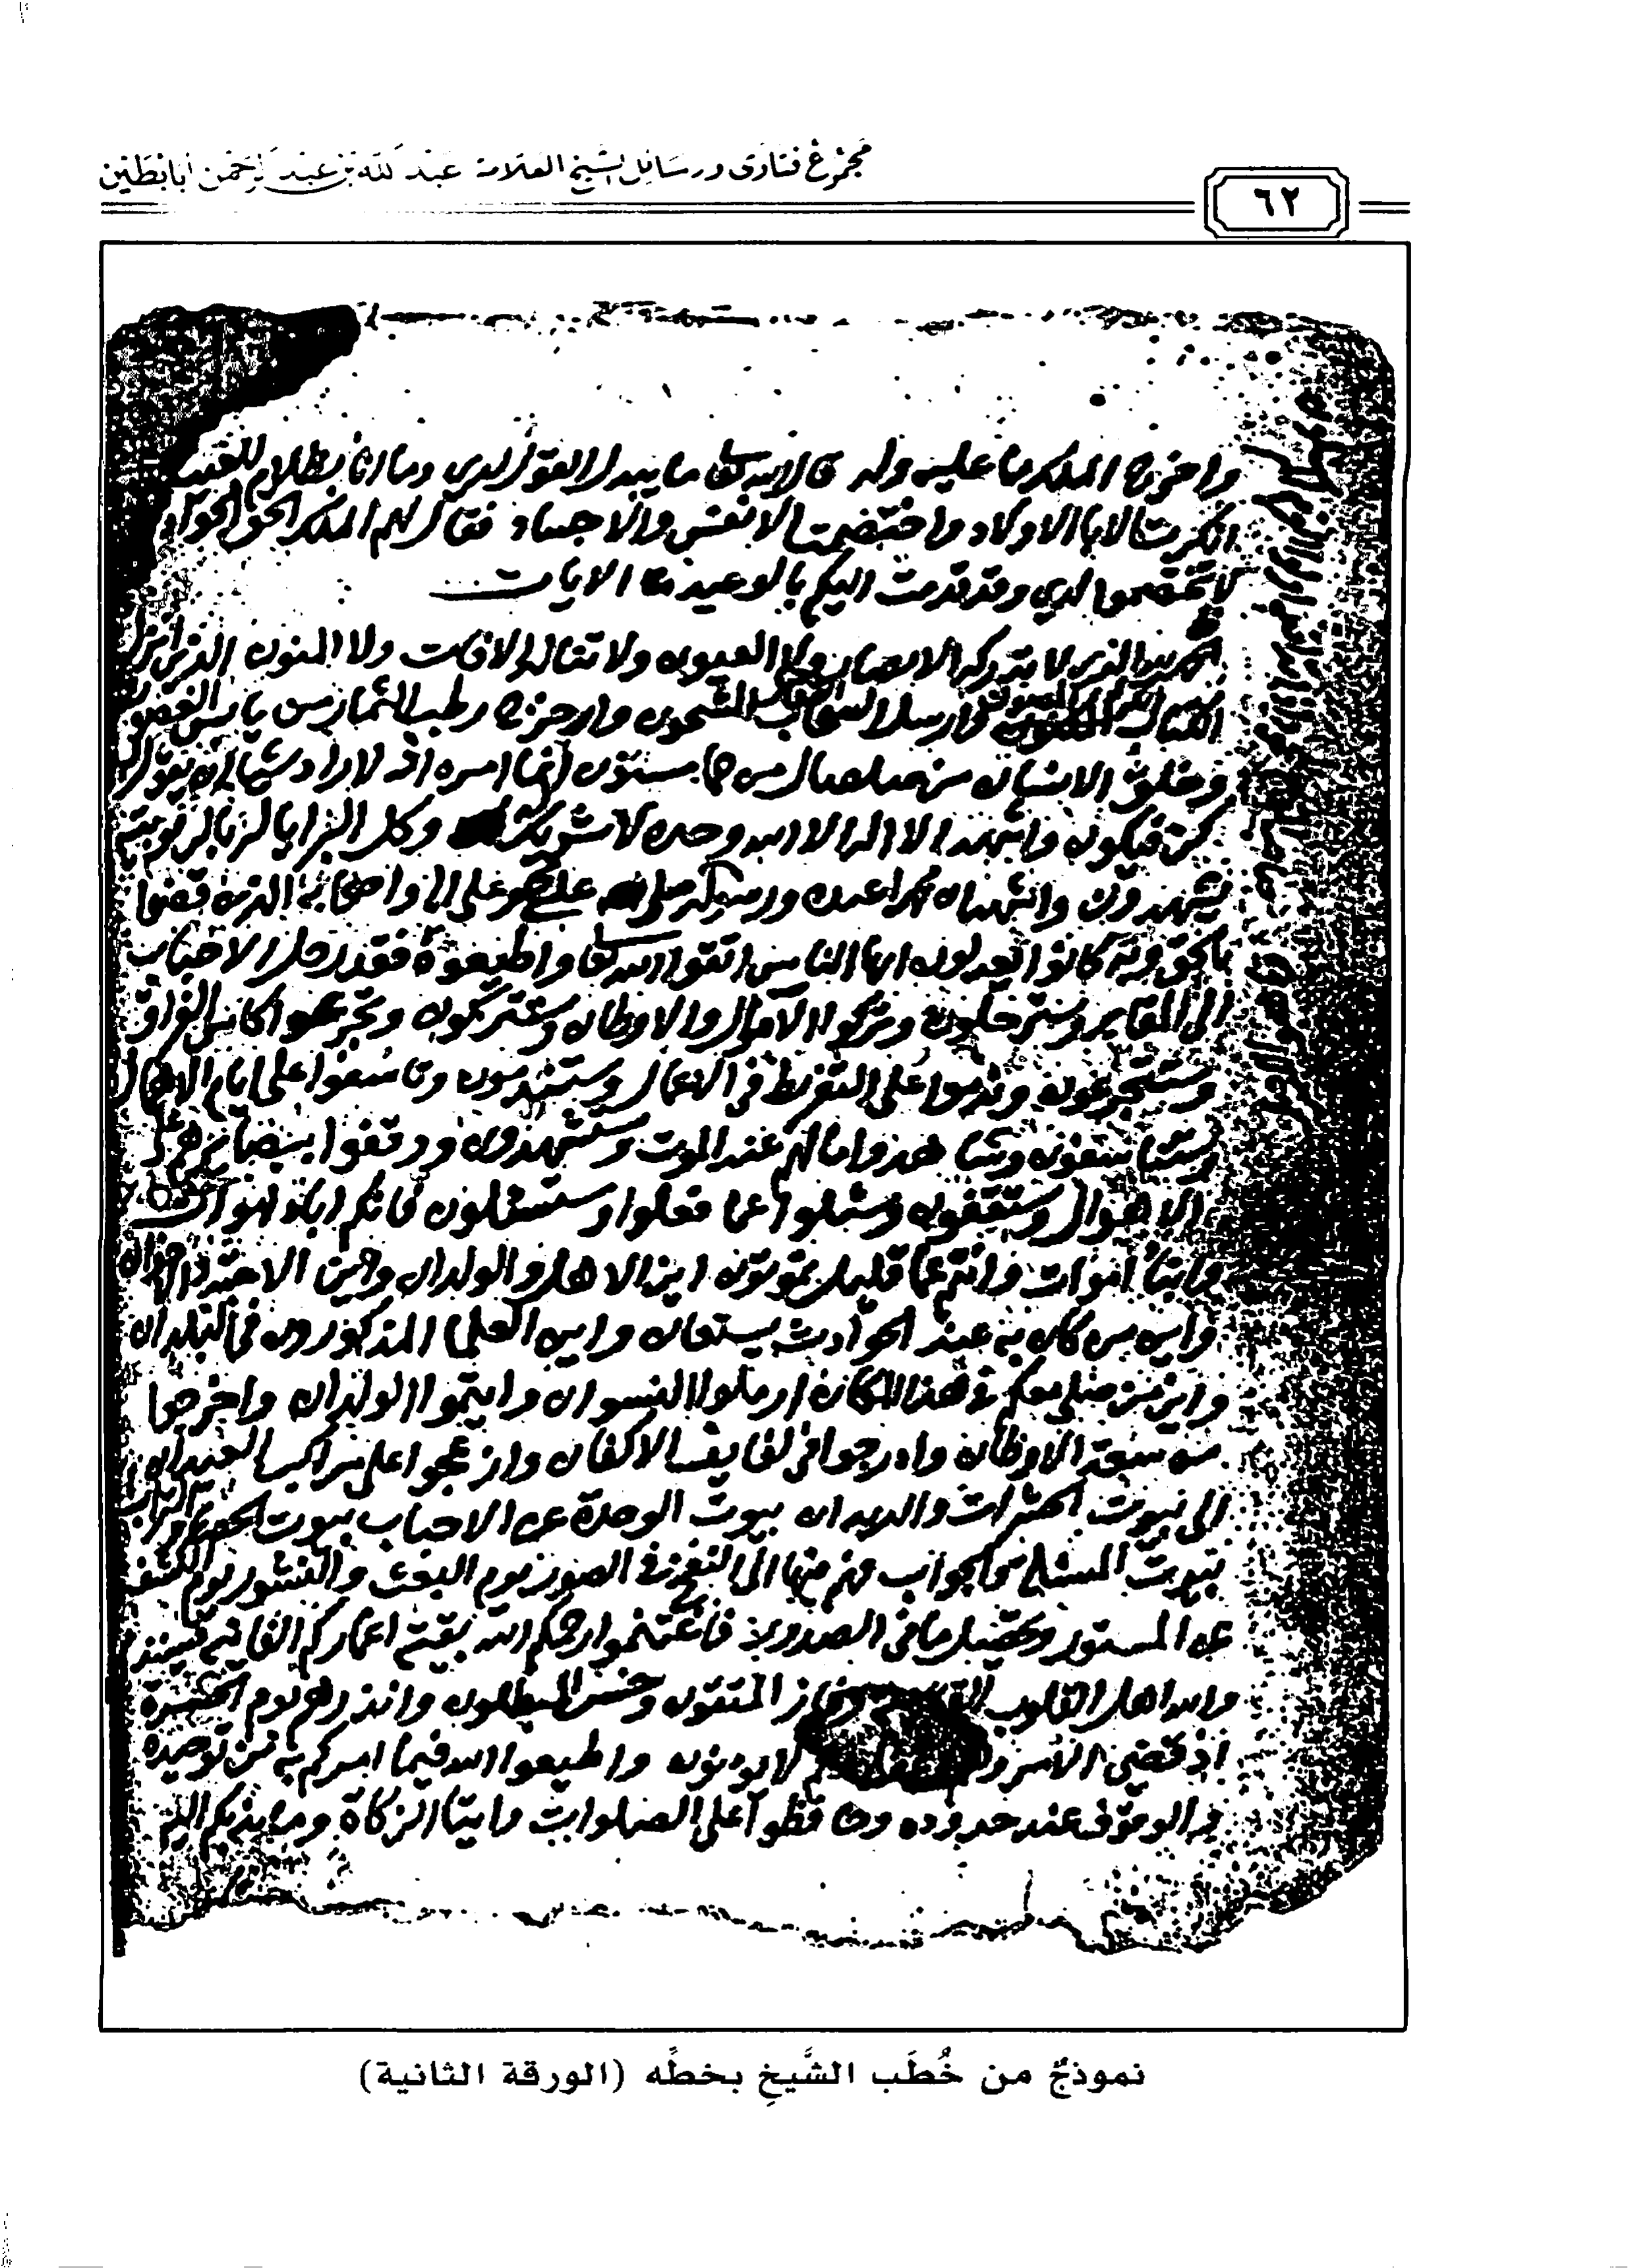 مجموع فتاوى ورسائل الشيخ العلامة عبد الله بن عبد الرحمن أبابطين
٦٢
واخرج الملك ما عليه وله قال الله تعالى ما يبدل القول لدي وما انا بظلام للعبيد
انكرت الابا الاولاد واختصمت الانفس والاجساد فقال لهم الملك الحق الجواد
لا تختصموا لدي وقد قدمت اليكم بالوعيد الايات
الحمد لله الذي لا تدركه الابصار ولا العيون ولا تناله الافات ولا المنون الذي انزل
الكتاب وارسل السحاب واخرج رطب الثمار من يابس الغصون
وخلق الانسان من صلصال من حما مسنون انما امره اذا اراد شيئا ان يقول له
كن فيكون واشهد الا اله الا الله وحده لا شريك له وكل البرايا له بالربوبية
يشهدون واشهد ان محمدا عبده ورسوله صلى الله عليه وعلى اله واصحابه الذين قضوا
بالحق وبه كانوا يعدلون ايها الناس اتقوا الله تعالى واطيعوه فقد رحل الاحباب
الى المقابر وسترحلون وتركوا الاموال والاوطان وستتركون وتجرعوا كاس الفراق
وستتجرعون وندموا على التفريط في الاعمال وستندمون وتاسفوا على ايام الاهمال
وستتاسفون وشاهدوا مالهم عند الموت وستشهدون ووقفوا ببضايعهم على
الاهوال وستقفون وسئلوا عما فعلوا وستسئلون فانكم اباؤ اموات
وابنا اموات وانتم عما قليل تموتون اين الاهل والولدان واين الاحبة والاخوان
واين من كان به عند الحوادث يستعان واين العلما المذكورون في البلدان
واين من صلى معكم في هذا المكان ارملوا النسوان وايتموا الولدان واخرجوا
من سعة الاوطان وادرجوا في لفايف الاكفان وازعجوا على مراكب العيدان
الى بيوت الحشرات والديدان بيوت الوحدة عن الاحباب بيوت
بيوت المسئلة والجواب منها الى النفخ في الصور يوم البعث والنشور يوم الكشف
عن المستور وتحصيل ما في الصدور فاغتنموا رحمكم الله بقية اعماركم الفانية
والله اهل القلوب وفاز المتقون وخسر المبطلون وانذرهم يوم الحسرة
اذ قضي الامر لا يومنون واطيعوا الله فيما امركم به من توحيده
والوقوف عند حدوده وحافظوا على الصلوات وايتا الزكاة
نموذجٌ من خُطَب الشَّيخِ بخطِّه (الورقة الثانية)